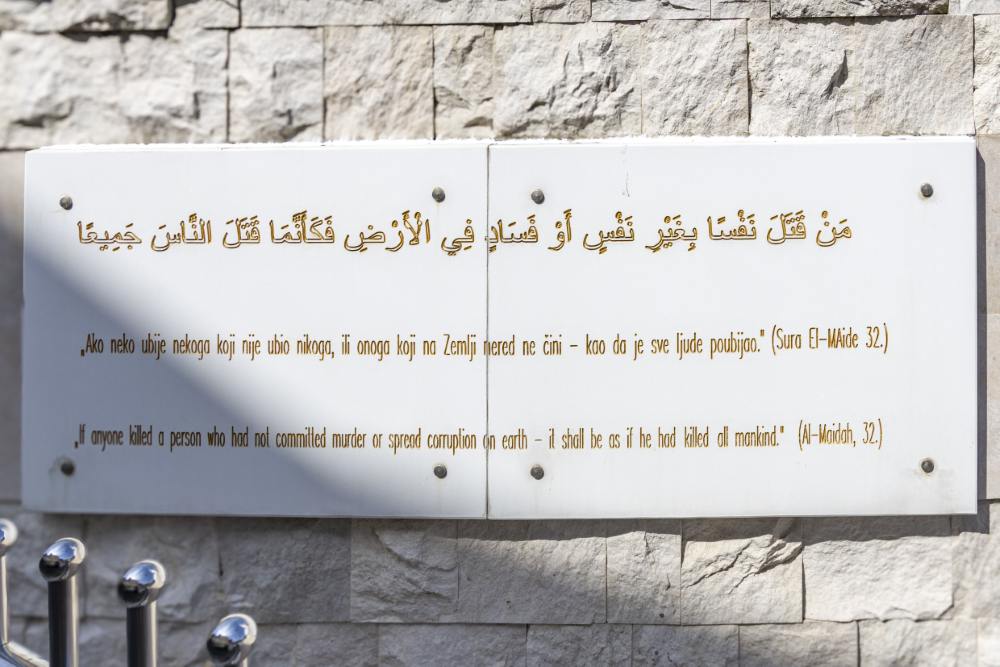 مَنْ قَتَلَ نَفْسًا بِغَيْرِ نَفْسٍ أَوْ فَسَادٍ فِي الْأَرْضِ فَكَأَنَّمَا قَتَلَ النَّاسَ جَمِيعًا
„Ako neko ubije nekoga koji nije ubio nikoga, ili onoga koji na Zemlji nered ne čini – kao da je sve ljude poubijao." (Sura El-MAide 32.)
„If anyone killed a person who had not committed murder or spread corruption on earth – it shall be as if he had killed all mankind." (Al-Maidah, 32.)